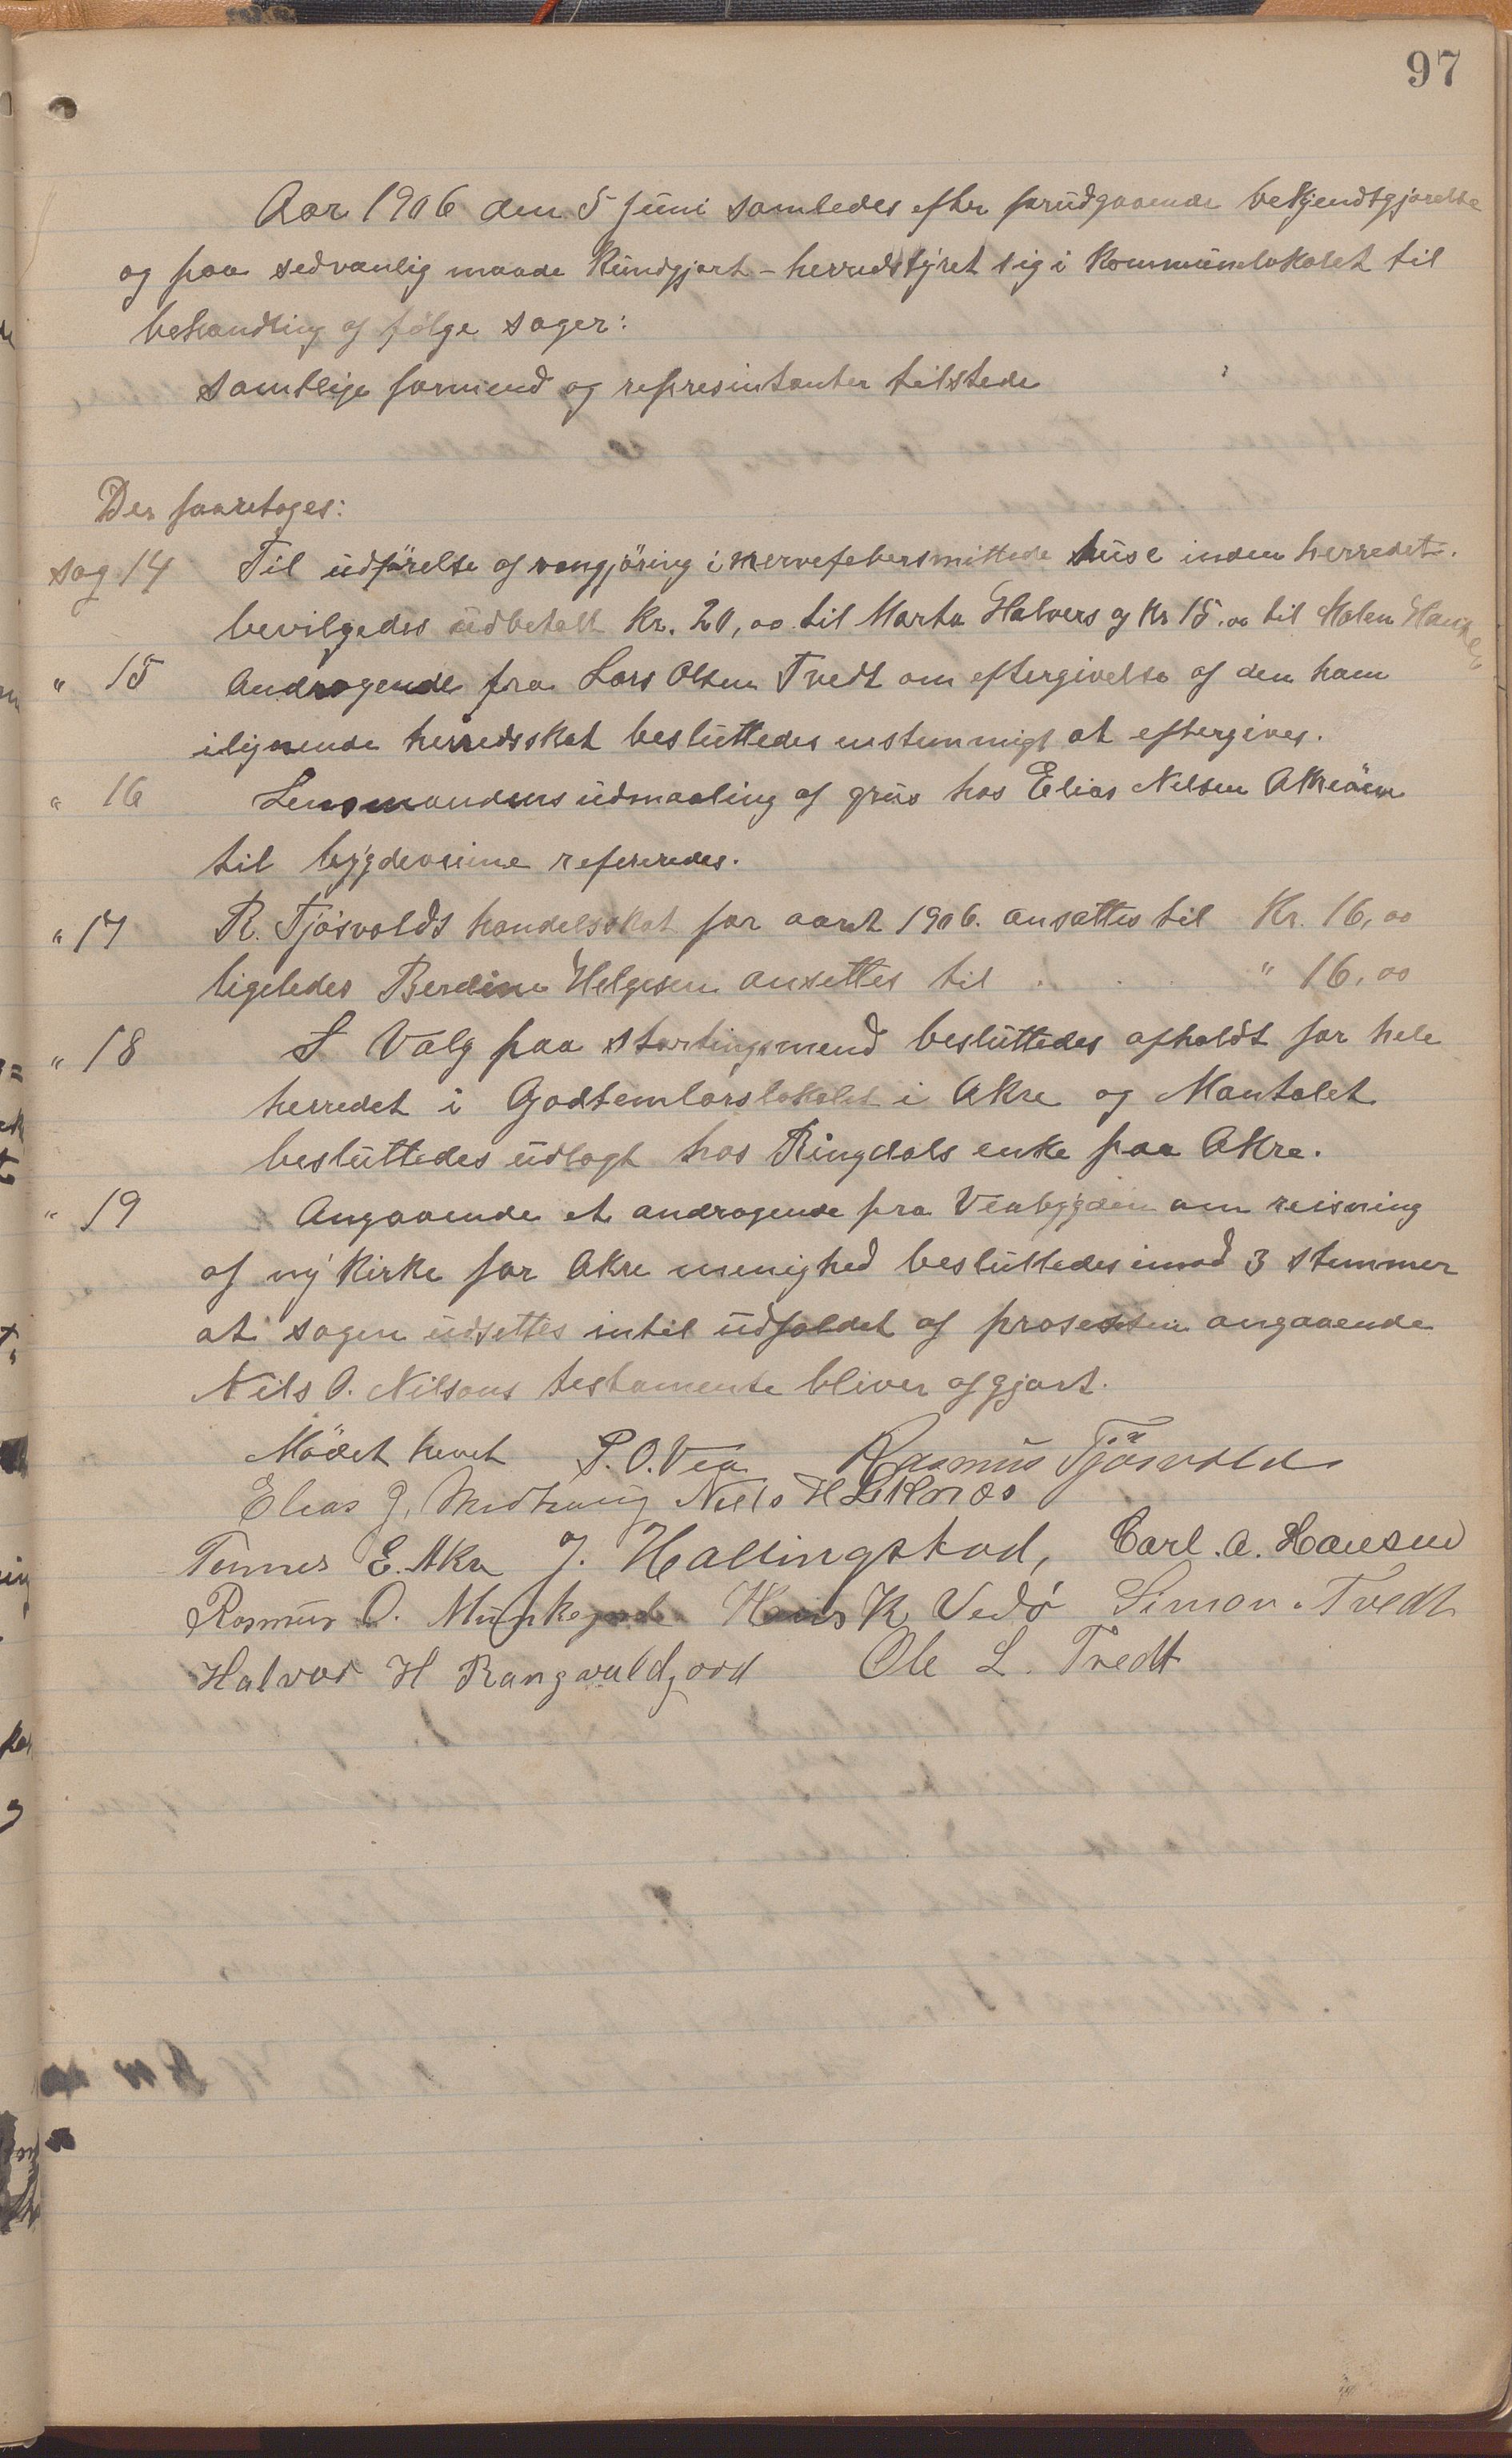 97
Aar 1906 den 5 juni samledes efter forudgaaende bekjendtgjørelse
og paa sedvanlig maade kundgjort - herredstyret sig i kommunelokalet til
behandling af følge sager:
samtlige formend og represintanter tilstede
Der foaretoges:
sag 14 Til udførelse af rengjöring i nervefebersmittede huse inden herredet.
bevilgedes udbetalt Kr. 20,00 til Marta Halvors og Kr 15.00 til Malen
" 15 Andragende fra Lars Olsen Tvedt om eftergivelse af den ham
ilignende herredsskat besluttedes enstemmigt at eftergives.
" 16 Lensmandens udmaaling af grus hos Elias Nilsen
til bygdeveiene refereredes.
" 17 R. Tjösvolds handelsskat for aaret 1906. ansattes til Kr. 16,00
ligeledes Berdine Helgesen ansettes til . . . . " 16,00
" 18 Valg paa stortingsmend besluttedes afholdt for hele
herredet i Godtemlarslokalet i Akre og Mantalet
besluttedes udlagt hos Ringdals enke paa Akre.
" 19 Angaaende et andragende fra Veabygden om reisning
af ny Kirke for Akre menighed besluttedes imod 3 stemmer
at sagen udsettes intil udfaldet af prosessen angaaende
Nils O. Nilsons testamente bliver afgjort.
Mödet hevet P. O. Vea Rasmus Tjösvold
Elias J. Medhaug Niels H Liknes
Tønnes E. Akra J. Hallingstad, Carl. A. Hansen
Rasmus O. Munkejord Hans K Vedö Simon Tvedt
Halvor H Rangvaldjord Ole L. Tvedt